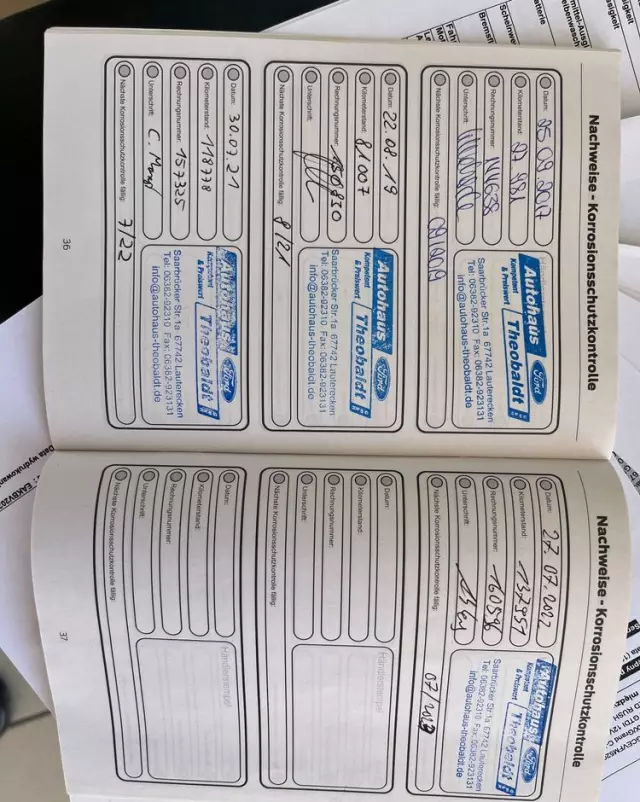 Nachweise - Korrosionsschutzkontrolle
Datum: 25 09 2017
Kilometerstand: 27 481
Rechnungsnummer: 144638
Unterschrift:
Nächste Korrosionsschutzkontrolle fällig: 09/2019
Autohaus Ford
Kompetent & Preiswert Theobaldt
Saarbrücker Str.1a 67742 Lauterecken
Tel: 06382-92310 Fax: 06382-923131
info@autohaus-theobaldt.de
Datum: 22.08.19
Kilometerstand: 81007
Rechnungsnummer: 150830
Unterschrift:
Nächste Korrosionsschutzkontrolle fällig: 8/21
Autohaus Ford
Kompetent & Preiswert Theobaldt
Saarbrücker Str.1a 67742 Lauterecken
Tel: 06382-92310 Fax: 06382-923131
info@autohaus-theobaldt.de
Datum: 30.07.21
Kilometerstand: 118778
Rechnungsnummer: 157335
Unterschrift: C.
Nächste Korrosionsschutzkontrolle fällig: 7/22
Autohaus Ford
Kompetent & Preiswert Theobaldt
Saarbrücker Str.1a 67742 Lauterecken
Tel: 06382-92310 Fax: 06382-923131
info@autohaus-theobaldt.de
36
Nachweise - Korrosionsschutzkontrolle
Datum: 27.07.2022
Kilometerstand: 137951
Rechnungsnummer: 160596
Unterschrift:
Nächste Korrosionsschutzkontrolle fällig: 07/2023
Autohaus Ford
Kompetent & Preiswert Theobaldt
Saarbrücker Str.1a 67742 Lauterecken
Tel: 06382-92310 Fax: 06382-923131
info@autohaus-theobaldt.de
Datum:
Kilometerstand:
Rechnungsnummer:
Unterschrift:
Nächste Korrosionsschutzkontrolle fällig:
Händlerstempel
Datum:
Kilometerstand:
Rechnungsnummer:
Unterschrift:
Nächste Korrosionsschutzkontrolle fällig:
Händlerstempel
37